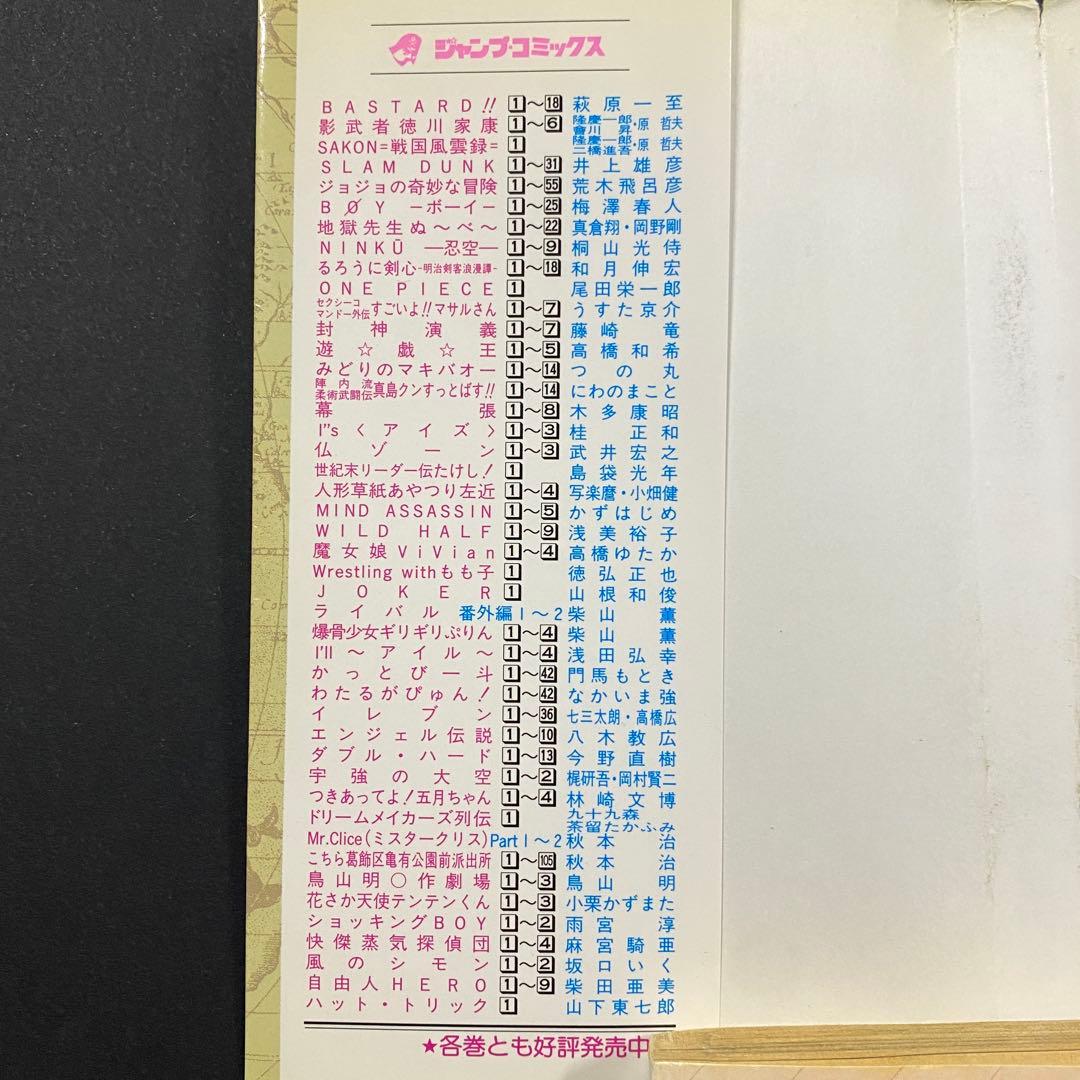 ジャンプ・コミックス
BASTARD!! 1〜18 萩原一至
影武者徳川家康 1〜6 隆慶一郎・會川昇・原哲夫
SAKON=戦国風雲録= 1 隆慶一郎・二橋進吾・原哲夫
SLAM DUNK 1〜31 井上雄彦
ジョジョの奇妙な冒険 1〜55 荒木飛呂彦
BØY −ボーイ− 1〜25 梅澤春人
地獄先生ぬ〜べ〜 1〜22 真倉翔・岡野剛
NINKŪ —忍空— 1〜9 桐山光侍
るろうに剣心-明治剣客浪漫譚- 1〜18 和月伸宏
ONE PIECE 1 尾田栄一郎
セクシーコマンドー外伝 すごいよ!!マサルさん 1〜7 うすた京介
封神演義 1〜7 藤崎竜
遊☆戯☆王 1〜5 高橋和希
みどりのマキバオー 1〜14 つの丸
陣内流柔術武闘伝 真島クンすっとばす!! 1〜14 にわのまこと
幕張 1〜8 木多康昭
I"s〈アイズ〉 1〜3 桂正和
仏ゾーン 1〜3 武井宏之
世紀末リーダー伝たけし! 1 島袋光年
人形草紙あやつり左近 1〜4 写楽麿・小畑健
MIND ASSASSIN 1〜5 かずはじめ
WILD HALF 1〜9 浅美裕子
魔女娘ViVian 1〜4 高橋ゆたか
Wrestling withもも子 1 徳弘正也
JOKER 1 山根和俊
ライバル 番外編1〜2 柴山薫
爆骨少女ギリギリぷりん 1〜4 柴山薫
I'll〜アイル〜 1〜4 浅田弘幸
かっとび一斗 1〜42 門馬もとき
わたるがぴゅん! 1〜42 なかいま強
イレブン 1〜36 七三太朗・高橋広
エンジェル伝説 1〜10 八木教広
ダブル・ハード 1〜13 今野直樹
宇強の大空 1〜2 梶研吾・岡村賢二
つきあってよ!五月ちゃん 1〜4 林崎文博
ドリームメイカーズ列伝 1 九十九森 茶留たかふみ
Mr.Clice(ミスタークリス) Part1〜2 秋本治
こちら葛飾区亀有公園前派出所 1〜105 秋本治
鳥山明○作劇場 1〜3 鳥山明
花さか天使テンテンくん 1〜3 小栗かずまた
ショッキングBOY 1〜2 雨宮淳
快傑蒸気探偵団 1〜4 麻宮騎亜
風のシモン 1〜2 坂口いく
自由人HERO 1〜9 柴田亜美
ハット・トリック 1 山下東七郎
★各巻とも好評発売中